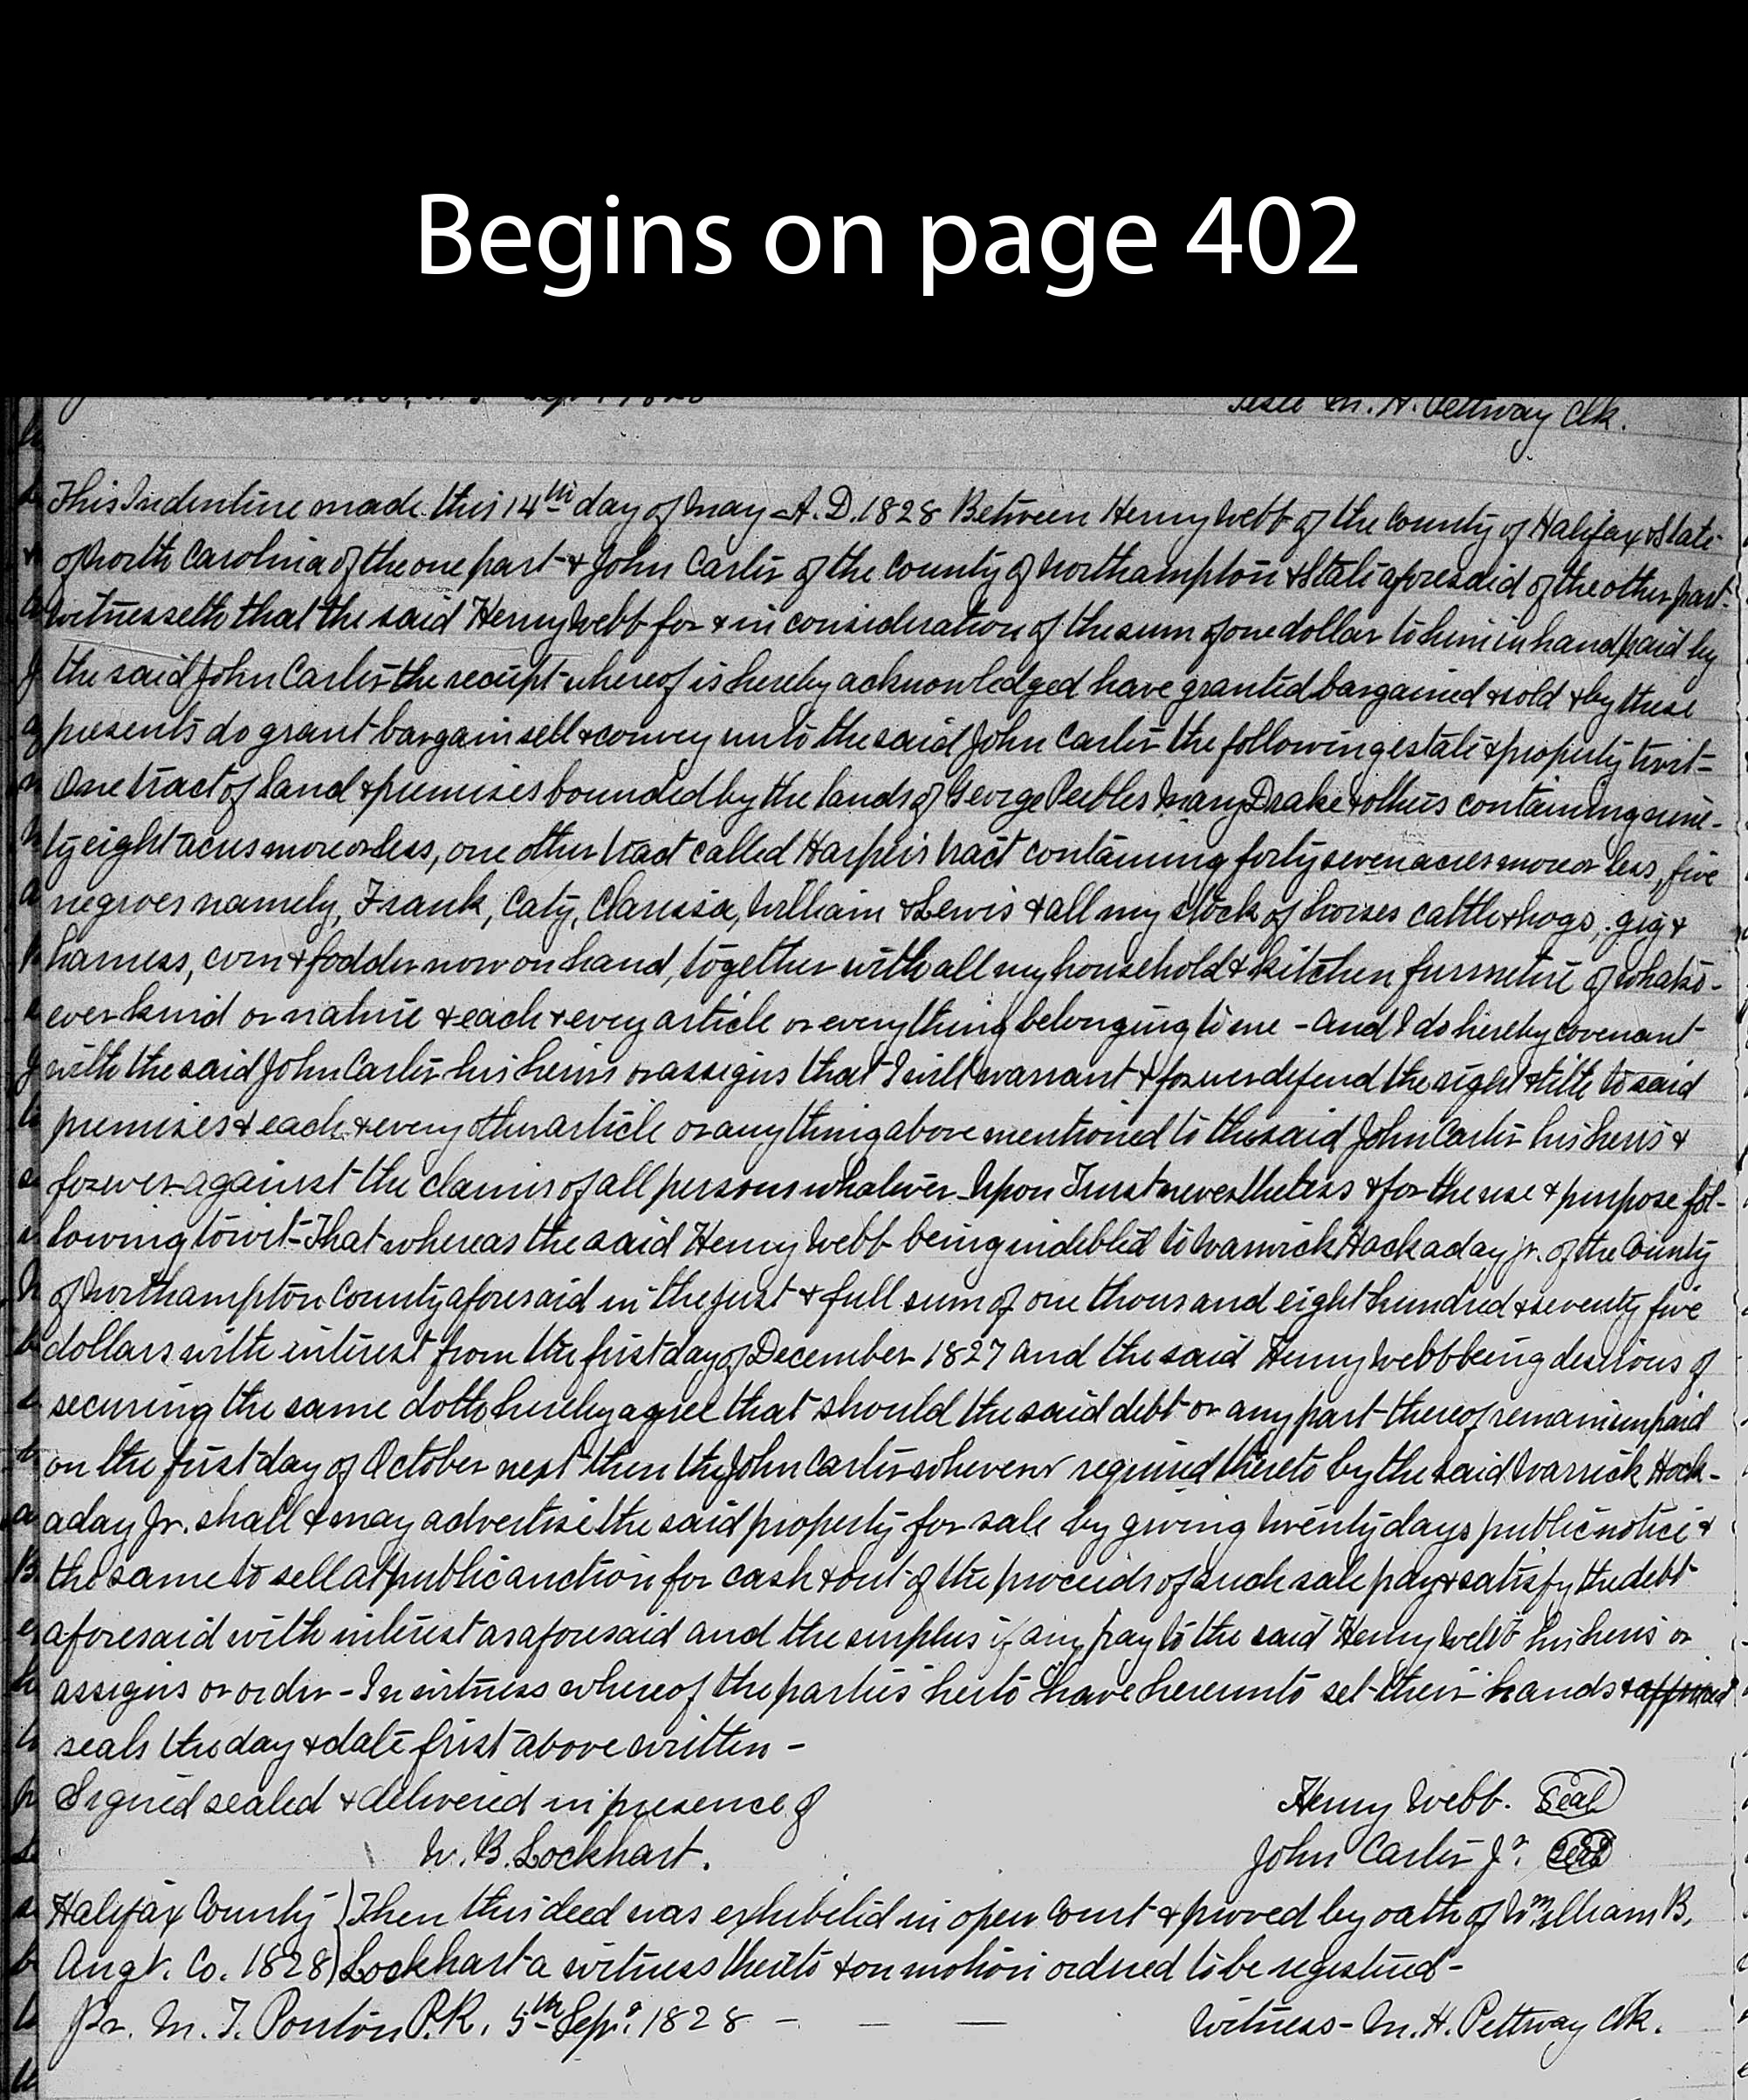 Begins on page 402
Teste M. H. Pettway Clk.
This Indenture made this 14th day of May A.D. 1828 Between Henry Webb of the County of Halifax & State
of North Carolina of the one part & John Carter of the County of Northampton & State aforesaid of the other part
witnesseth that the said Henry Webb for & in consideration of the sum of one dollar to him in hand paid by
the said John Carter the receipt whereof is hereby acknowledged have granted bargained & sold & by these
presents do grant bargain sell & convey unto the said John Carter the following estate & property towit-
One tract of land & premises bounded by the lands of George Peebles Mary Drake & others containing nine-
ty eight acres more or less, one other tract called Harper's tract containing forty seven acres more or less, five
negroes namely, Frank, Caty, Clarissa, William & Lewis & all my stock of horses cattle & hogs, gig &
harness, corn & fodder now on hand, together with all my household & kitchen furniture of whatso-
ever kind or nature & each & every article or everything belonging to me - And I do hereby covenant
with the said John Carter his heirs or assigns that I will warrant & forever defend the right & title to said
premises & each & every other article or anything above mentioned to the said John Carter his heirs &
forever against the claims of all persons whatever Upon Trust nevertheless & for the use & purpose fol-
lowing towit- That whereas the said Henry Webb being indebted to Warrick Hockaday jr. of the County
of Northampton County aforesaid in the just & full sum of one thousand eight hundred & seventy five
dollars with interest from the first day of December 1827 and the said Henry Webb being desirous of
securing the same doth hereby agree that should the said debt or any part thereof remain unpaid
on the first day of October next then the John Carter whenever required thereto by the said Warrick Hock-
aday Jr. shall & may advertise the said property for sale by giving twenty days public notice &
the same to sell at public auction for cash & out of the proceeds of such sale pay & satisfy the debt
aforesaid with interest as aforesaid and the surplus if any pay to the said Henry Webb his heirs or
assigns or order - In witness whereof the parties herto have hereunto set their hands & affixed
seals the day & date first above written -
Signed sealed & delivered in presence of
Henry Webb. Seal
W. B. Lockhart.
John Carter Jr. Seal
Halifax County ) Then this deed was exhibited in open Court & proved by oath of William B.
Augt. Co. 1828 ) Lockhart a witness thereto & on motion ordered to be registered -
Pr. M. T. Ponton P.R. 5th Sepr. 1828 - - -
Witness - M. H. Pettway Clk.